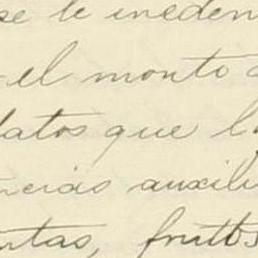 se le
el monto
datos que
ncias auxili
ntas, frutos